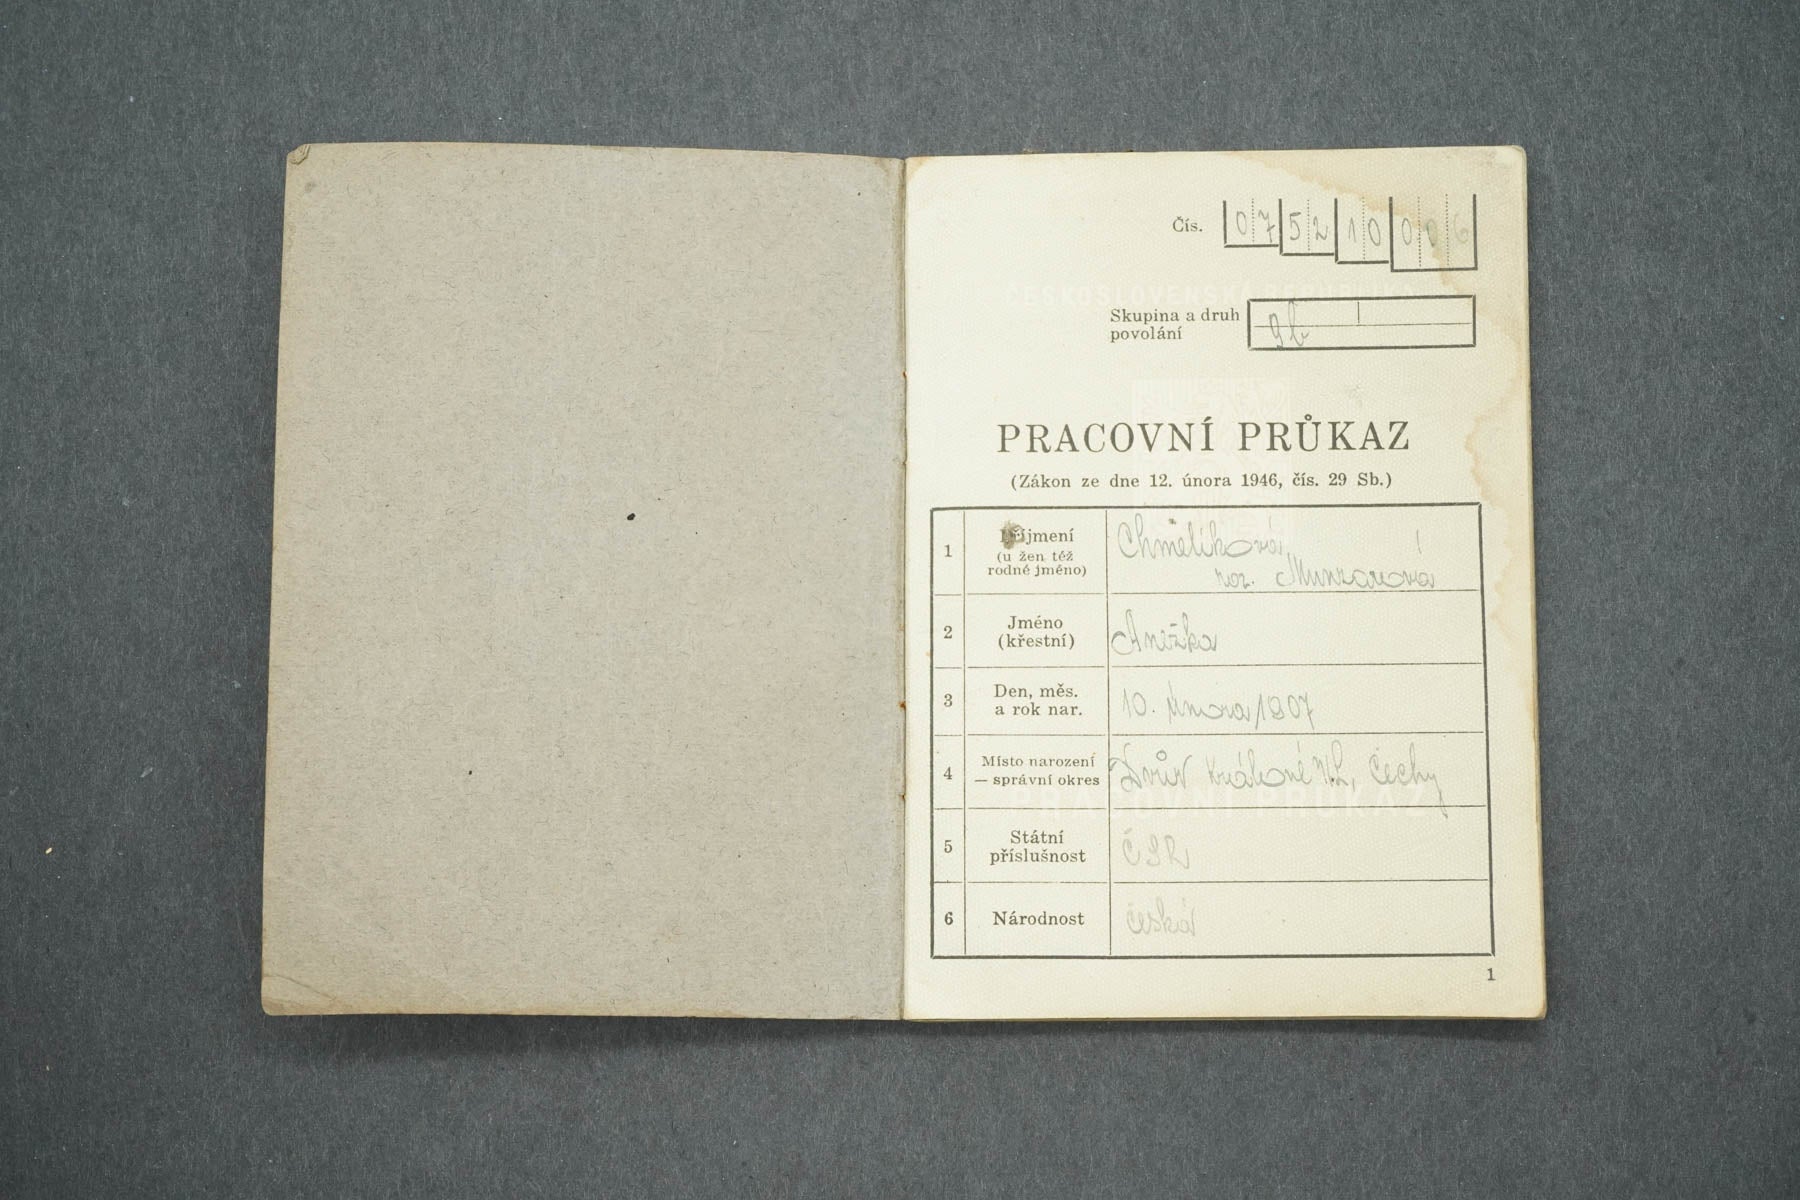 Čís. 075210006
ČESKOSLOVENSKÁ REPUBLIKA
Skupina a druh
povolání
9b
PRACOVNÍ PRŮKAZ
(Zákon ze dne 12. února 1946, čís. 29 Sb.)
1 Příjmení
(u žen též
rodné jméno)
Chmelíková,
roz. Munzarová
2 Jméno
(křestní)
Anežka
3 Den, měs.
a rok nar.
10. února 1907
4 Místo narození
— správní okres
Dvůr Králové n/L, Čechy
PRACOVNÍ PRŮKAZ
5 Státní
příslušnost
ČSR
6 Národnost česká
1